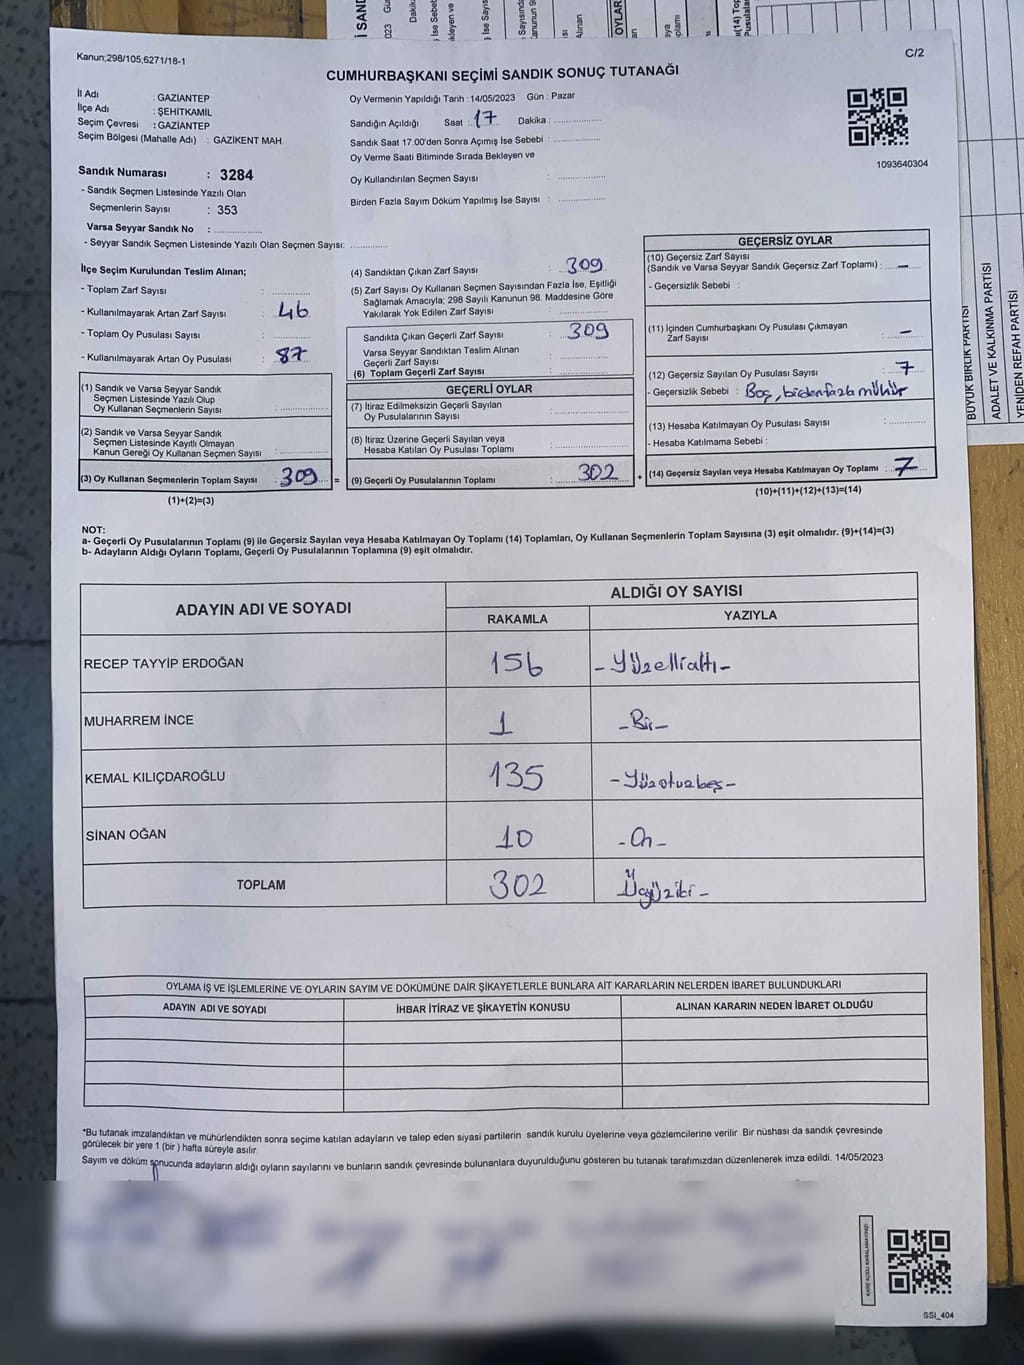 Kanun;298/105,6271/18-1
C/2
CUMHURBAŞKANI SEÇİMİ SANDIK SONUÇ TUTANAĞI
İl Adı : GAZİANTEP
İlçe Adı : ŞEHİTKAMİL
Seçim Çevresi : GAZİANTEP
Seçim Bölgesi (Mahalle Adı) : GAZİKENT MAH.
Oy Vermenin Yapıldığı Tarih :14/05/2023 Gün : Pazar
Sandığın Açıldığı Saat : 17 Dakika :
Sandık Saat 17.00'den Sonra Açımış İse Sebebi :
Oy Verme Saati Bitiminde Sırada Bekleyen ve
Oy Kullandırılan Seçmen Sayısı :
Birden Fazla Sayım Döküm Yapılmış İse Sayısı :
1093640304
Sandık Numarası : 3284
- Sandık Seçmen Listesinde Yazılı Olan
Seçmenlerin Sayısı : 353
Varsa Seyyar Sandık No :
- Seyyar Sandık Seçmen Listesinde Yazılı Olan Seçmen Sayısı:
İlçe Seçim Kurulundan Teslim Alınan;
- Toplam Zarf Sayısı :
- Kullanılmayarak Artan Zarf Sayısı : 46
- Toplam Oy Pusulası Sayısı :
- Kullanılmayarak Artan Oy Pusulası : 87
(1) Sandık ve Varsa Seyyar Sandık
Seçmen Listesinde Yazılı Olup
Oy Kullanan Seçmenlerin Sayısı :
(2) Sandık ve Varsa Seyyar Sandık
Seçmen Listesinde Kayıtlı Olmayan
Kanun Gereği Oy Kullanan Seçmen Sayısı :
(3) Oy Kullanan Seçmenlerin Toplam Sayısı : 309 =
(1)+(2)=(3)
(4) Sandıktan Çıkan Zarf Sayısı : 309
(5) Zarf Sayısı Oy Kullanan Seçmen Sayısından Fazla İse, Eşitliği
Sağlamak Amacıyla; 298 Sayılı Kanunun 98. Maddesine Göre
Yakılarak Yok Edilen Zarf Sayısı :
Sandıkta Çıkan Geçerli Zarf Sayısı : 309
Varsa Seyyar Sandıktan Teslim Alınan
Geçerli Zarf Sayısı :
(6) Toplam Geçerli Zarf Sayısı :
GEÇERLİ OYLAR
(7) İtiraz Edilmeksizin Geçerli Sayılan
Oy Pusulalarının Sayısı :
(8) İtiraz Üzerine Geçerli Sayılan veya
Hesaba Katılan Oy Pusulası Toplamı :
(9) Geçerli Oy Pusulalarının Toplamı : 302 +
GEÇERSİZ OYLAR
(10) Geçersiz Zarf Sayısı
(Sandık ve Varsa Seyyar Sandık Geçersiz Zarf Toplamı) : –
- Geçersizlik Sebebi :
(11) İçinden Cumhurbaşkanı Oy Pusulası Çıkmayan
Zarf Sayısı : –
(12) Geçersiz Sayılan Oy Pusulası Sayısı : 7
- Geçersizlik Sebebi : Boş, birden fazla mühür
(13) Hesaba Katılmayan Oy Pusulası Sayısı :
- Hesaba Katılmama Sebebi :
(14) Geçersiz Sayılan veya Hesaba Katılmayan Oy Toplamı : 7
(10)+(11)+(12)+(13)=(14)
NOT:
a- Geçerli Oy Pusulalarının Toplamı (9) ile Geçersiz Sayılan veya Hesaba Katılmayan Oy Toplamı (14) Toplamları, Oy Kullanan Seçmenlerin Toplam Sayısına (3) eşit olmalıdır. (9)+(14)=(3)
b- Adayların Aldığı Oyların Toplamı, Geçerli Oy Pusulalarının Toplamına (9) eşit olmalıdır.
ADAYIN ADI VE SOYADI
ALDIĞI OY SAYISI
RAKAMLA YAZIYLA
RECEP TAYYİP ERDOĞAN 156 - Yüzellialtı -
MUHARREM İNCE 1 - Bir -
KEMAL KILIÇDAROĞLU 135 - Yüzotuzbeş -
SİNAN OĞAN 10 - On -
TOPLAM 302 - Üçyüziki -
OYLAMA İŞ VE İŞLEMLERİNE VE OYLARIN SAYIM VE DÖKÜMÜNE DAİR ŞİKAYETLERLE BUNLARA AİT KARARLARIN NELERDEN İBARET BULUNDUKLARI
ADAYIN ADI VE SOYADI İHBAR İTİRAZ VE ŞİKAYETİN KONUSU ALINAN KARARIN NEDEN İBARET OLDUĞU
*Bu tutanak imzalandıktan ve mühürlendikten sonra seçime katılan adayların ve talep eden siyasi partilerin sandık kurulu üyelerine veya gözlemcilerine verilir. Bir nüshası da sandık çevresinde
görülecek bir yere 1 (bir ) hafta süreyle asılır.
Sayım ve döküm sonucunda adayların aldığı oyların sayılarını ve bunların sandık çevresinde bulunanlara duyurulduğunu gösteren bu tutanak tarafımızdan düzenlenerek imza edildi. 14/05/2023
KARE KODU KARALAMAYINIZ!
SSI_404
BÜYÜK BİRLİK PARTİSİ
ADALET VE KALKINMA PARTİSİ
YENİDEN REFAH PARTİSİ